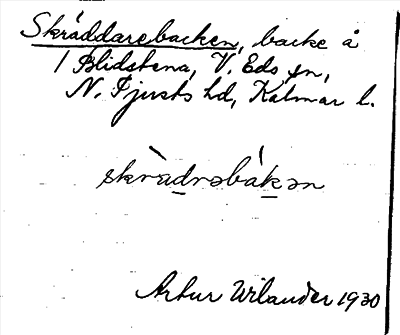 Skräddarebacken, backe å
1 Blidstena, V. Eds sn,
N. Tjusts hd, Kalmar l.
skrädrəbákən
Artur Wilander 1930